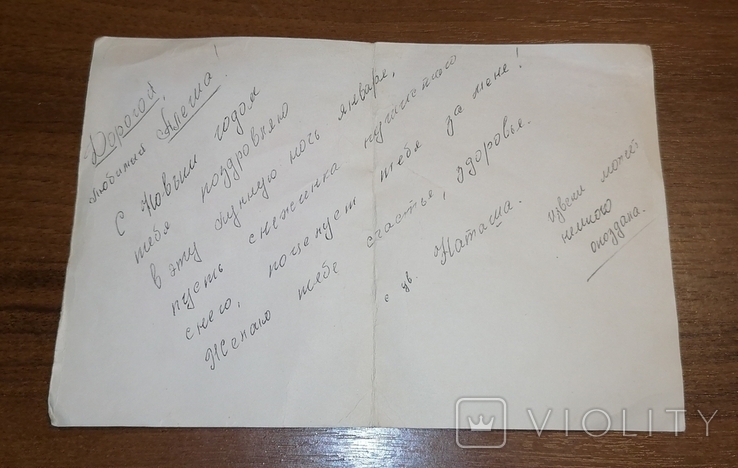 Дорогой,
любимый Алеша!
С Новым годом
тебя поздравляю
в эту лунную ночь января,
пусть снежинка пушистого
снега, поцелует тебя за меня!
Желаю тебе счастья, здоровья.
с ув. Наташа.
извени может
немного
опоздала.
VIOLITY